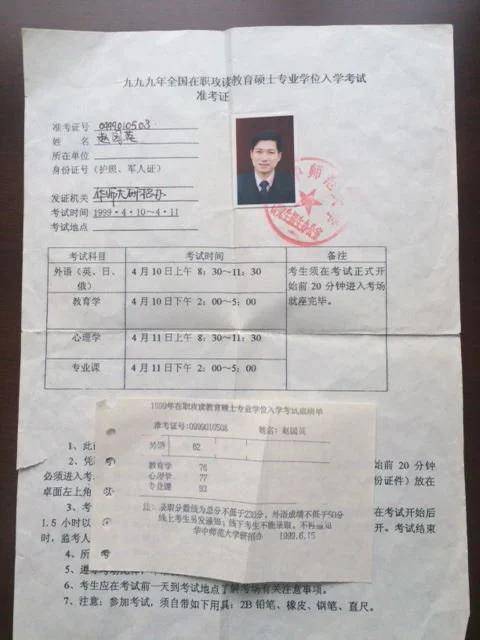 一九九九年全国在职攻读教育硕士专业学位入学考试
准考证
准考证号 0999010503
姓名 赵国英
所在单位
身份证号（护照、军人证）
发证机关 华师大研招办
考试时间 1999·4·10～4·11
考试地点
考试科目 考试时间 备注
外语（英、日、俄） 4月10日上午 8：30～11：30 考生须在考试正式开始前20分钟进入考场就座完毕。
教育学 4月10日下午 2：00～5：00
心理学 4月11日上午 8：30～11：30
专业课 4月11日下午 2：00～5：00
1999年在职攻读教育硕士专业学位入学考试成绩单
准考证号:0999010503 姓名: 赵国英
外语 62
教育学 76
心理学 77
专业课 93
注：录取分数线为总分不低于230分，外语成绩不低于50分
线上考生另发通知；线下考生不能录取，不再通知
华中师范大学研招办 1999.6.15
1、此
2、凭 始前20分钟
必须进入考 份证件）放在
桌面左上角
3、考 在考试开始后
1.5小时以 开。考试结束
时，监考人
4、所
5、
6、考生应在考试前一天到考试地点了解考场有关注意事项。
7、注意：参加考试，须自带如下用具：2B铅笔、橡皮、钢笔、直尺。